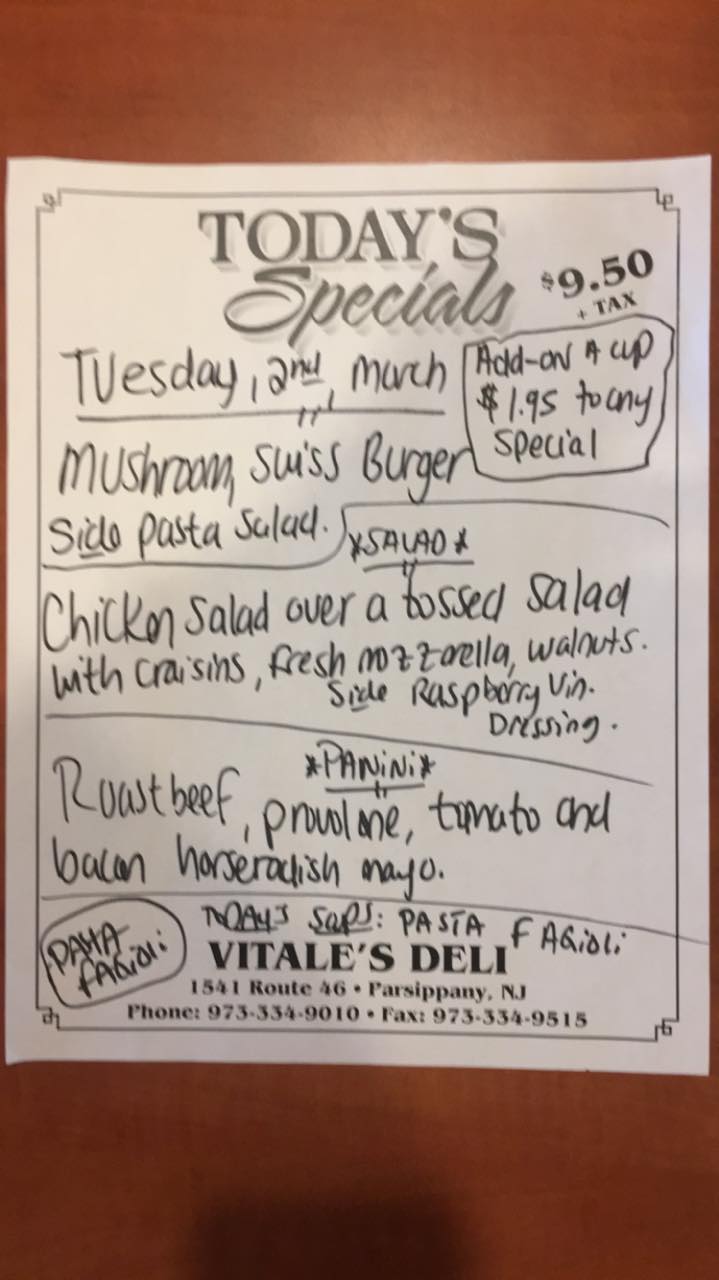 TODAY'S
Specials
$9.50
+ TAX
Tuesday, 2nd, March
Add-on A cup
$1.95 to any
special
Mushroom, Swiss Burger
Side pasta salad.
*SALAD*
Chicken salad over a tossed salad
with craisins, fresh mozzorella, walnuts.
Side Raspberry Vin.
Dressing.
*PANiNi*
Roastbeef, provolone, tomato and
bacon horseradish mayo.
TODAYS Sops: PASTA FAGiOLi
PASTA
FAGiOLi
VITALE'S DELI
1541 Route 46 • Parsippany, NJ
Phone: 973-334-9010 • Fax: 973-334-9515